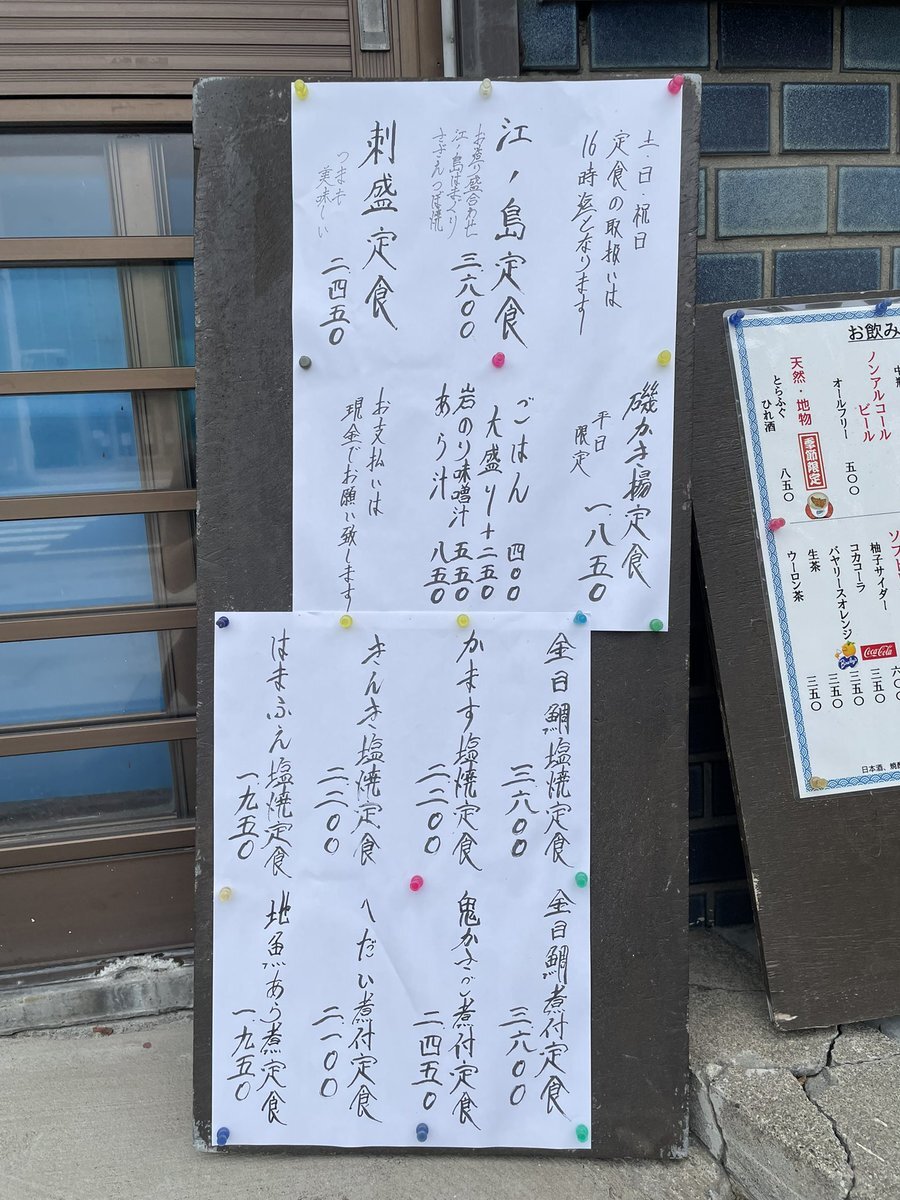 土・日・祝日
定食の取扱いは
16時迄となります
江ノ島定食
お造り盛合わせ
江ノ島はまぐり
さざえつぼ焼
三六〇〇
刺盛定食
つまも
美味しい
二四五〇
磯かき揚定食
平日
限定
一八五〇
ごはん 四〇〇
大盛り+二五〇
岩のり味噌汁 五五〇
あら汁 八五〇
お支払いは
現金でお願い致します
金目鯛塩焼定食
三六〇〇
かます塩焼定食
二二〇〇
きんき塩焼定食
二二〇〇
はまふえ塩焼定食
一九五〇
金目鯛煮付定食
三六〇〇
鬼かさご煮付定食
二四五〇
へだい煮付定食
二一〇〇
地魚あら煮定食
一九五〇
お飲み
ノンアルコール
ビール
オールフリー 五〇〇
天然・地物 季節限定
とらふぐ
ひれ酒 八五〇
ソフト
六〇〇
柚子サイダー 三五〇
Coca-Cola
コカコーラ 三五〇
バヤリースオレンジ 三五〇
生茶
ウーロン茶 三五〇
日本酒、焼酎